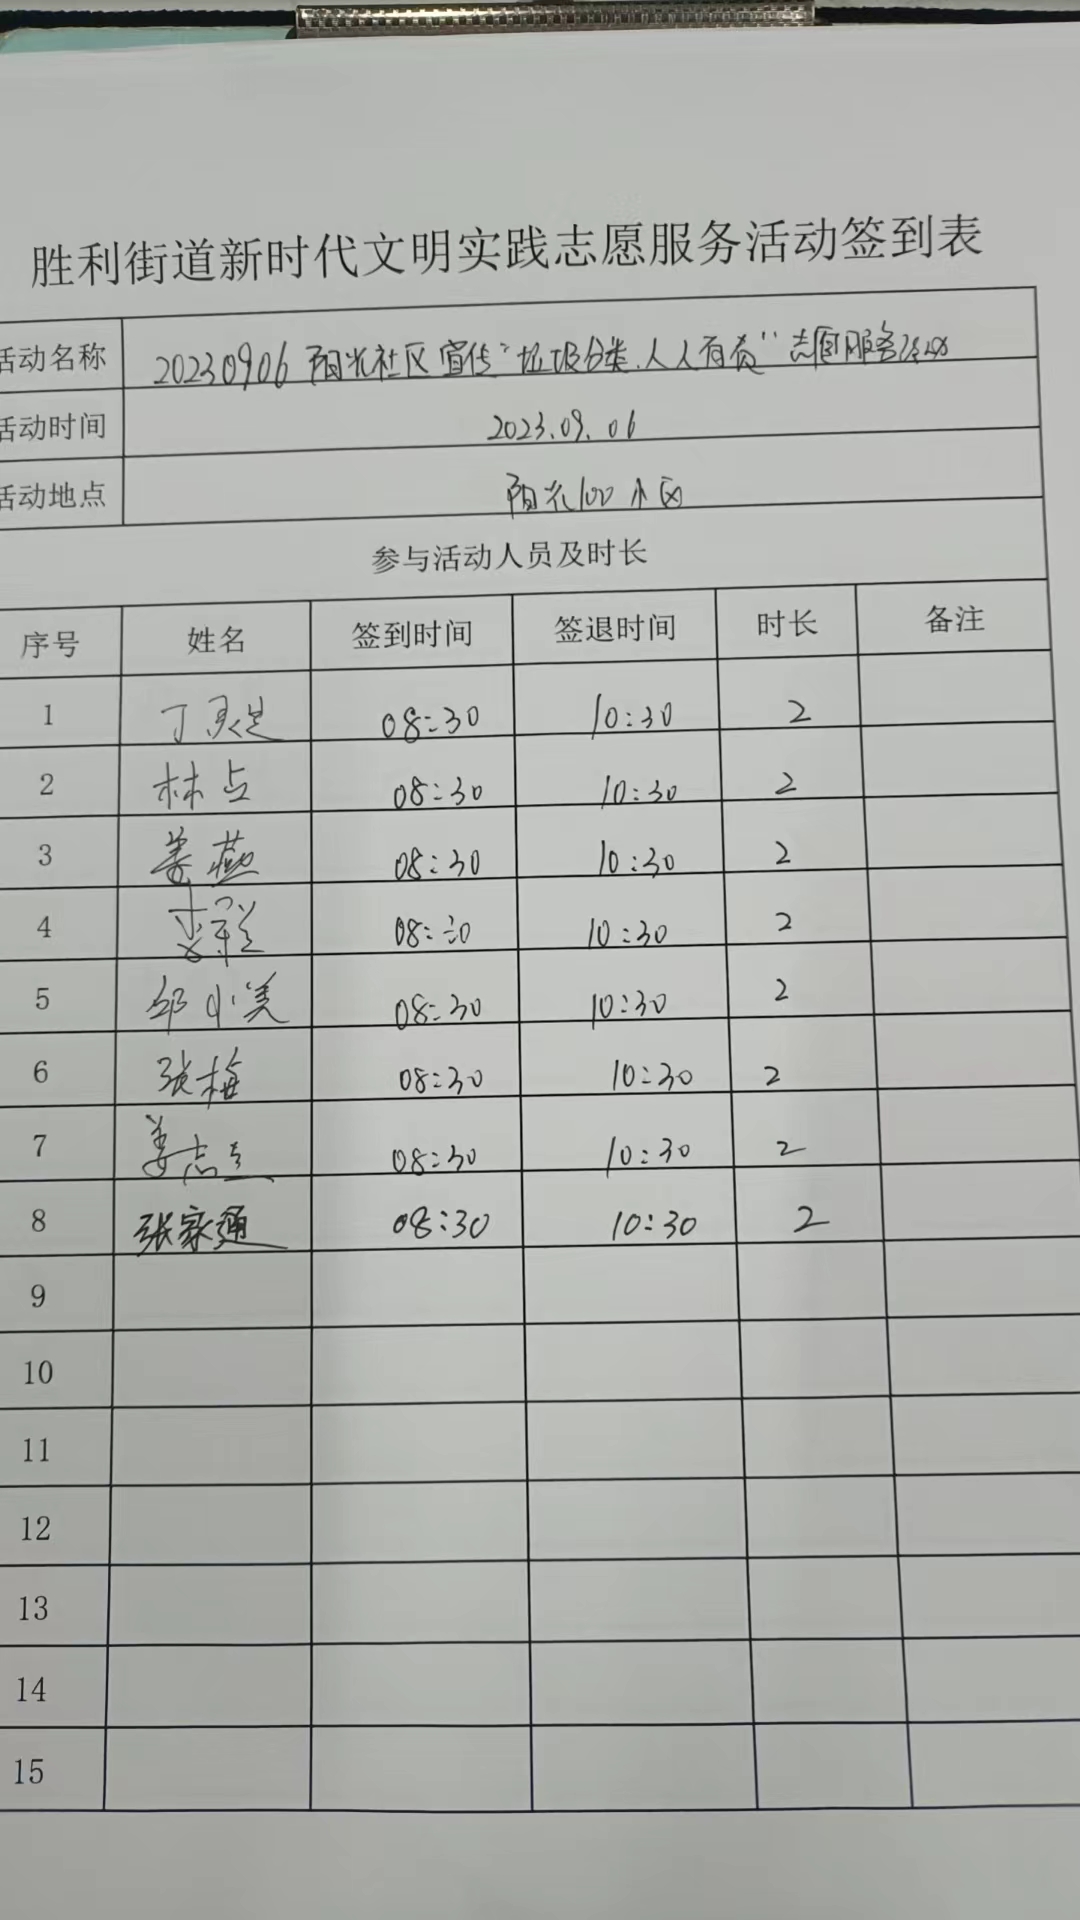 胜利街道新时代文明实践志愿服务活动签到表
活动名称 20230906阳光社区宣传"垃圾分类,人人有责"志愿服务活动
活动时间 2023.09.06
活动地点 阳光100小区
参与活动人员及时长
序号 姓名 签到时间 签退时间 时长 备注
1 丁 08:30 10:30 2
2 林 08:30 10:30 2
3 姜燕 08:30 10:30 2
4 李 08:30 10:30 2
5 邱小美 08:30 10:30 2
6 张梅 08:30 10:30 2
7 姜志 08:30 10:30 2
8 张家通 08:30 10:30 2
9
10
11
12
13
14
15